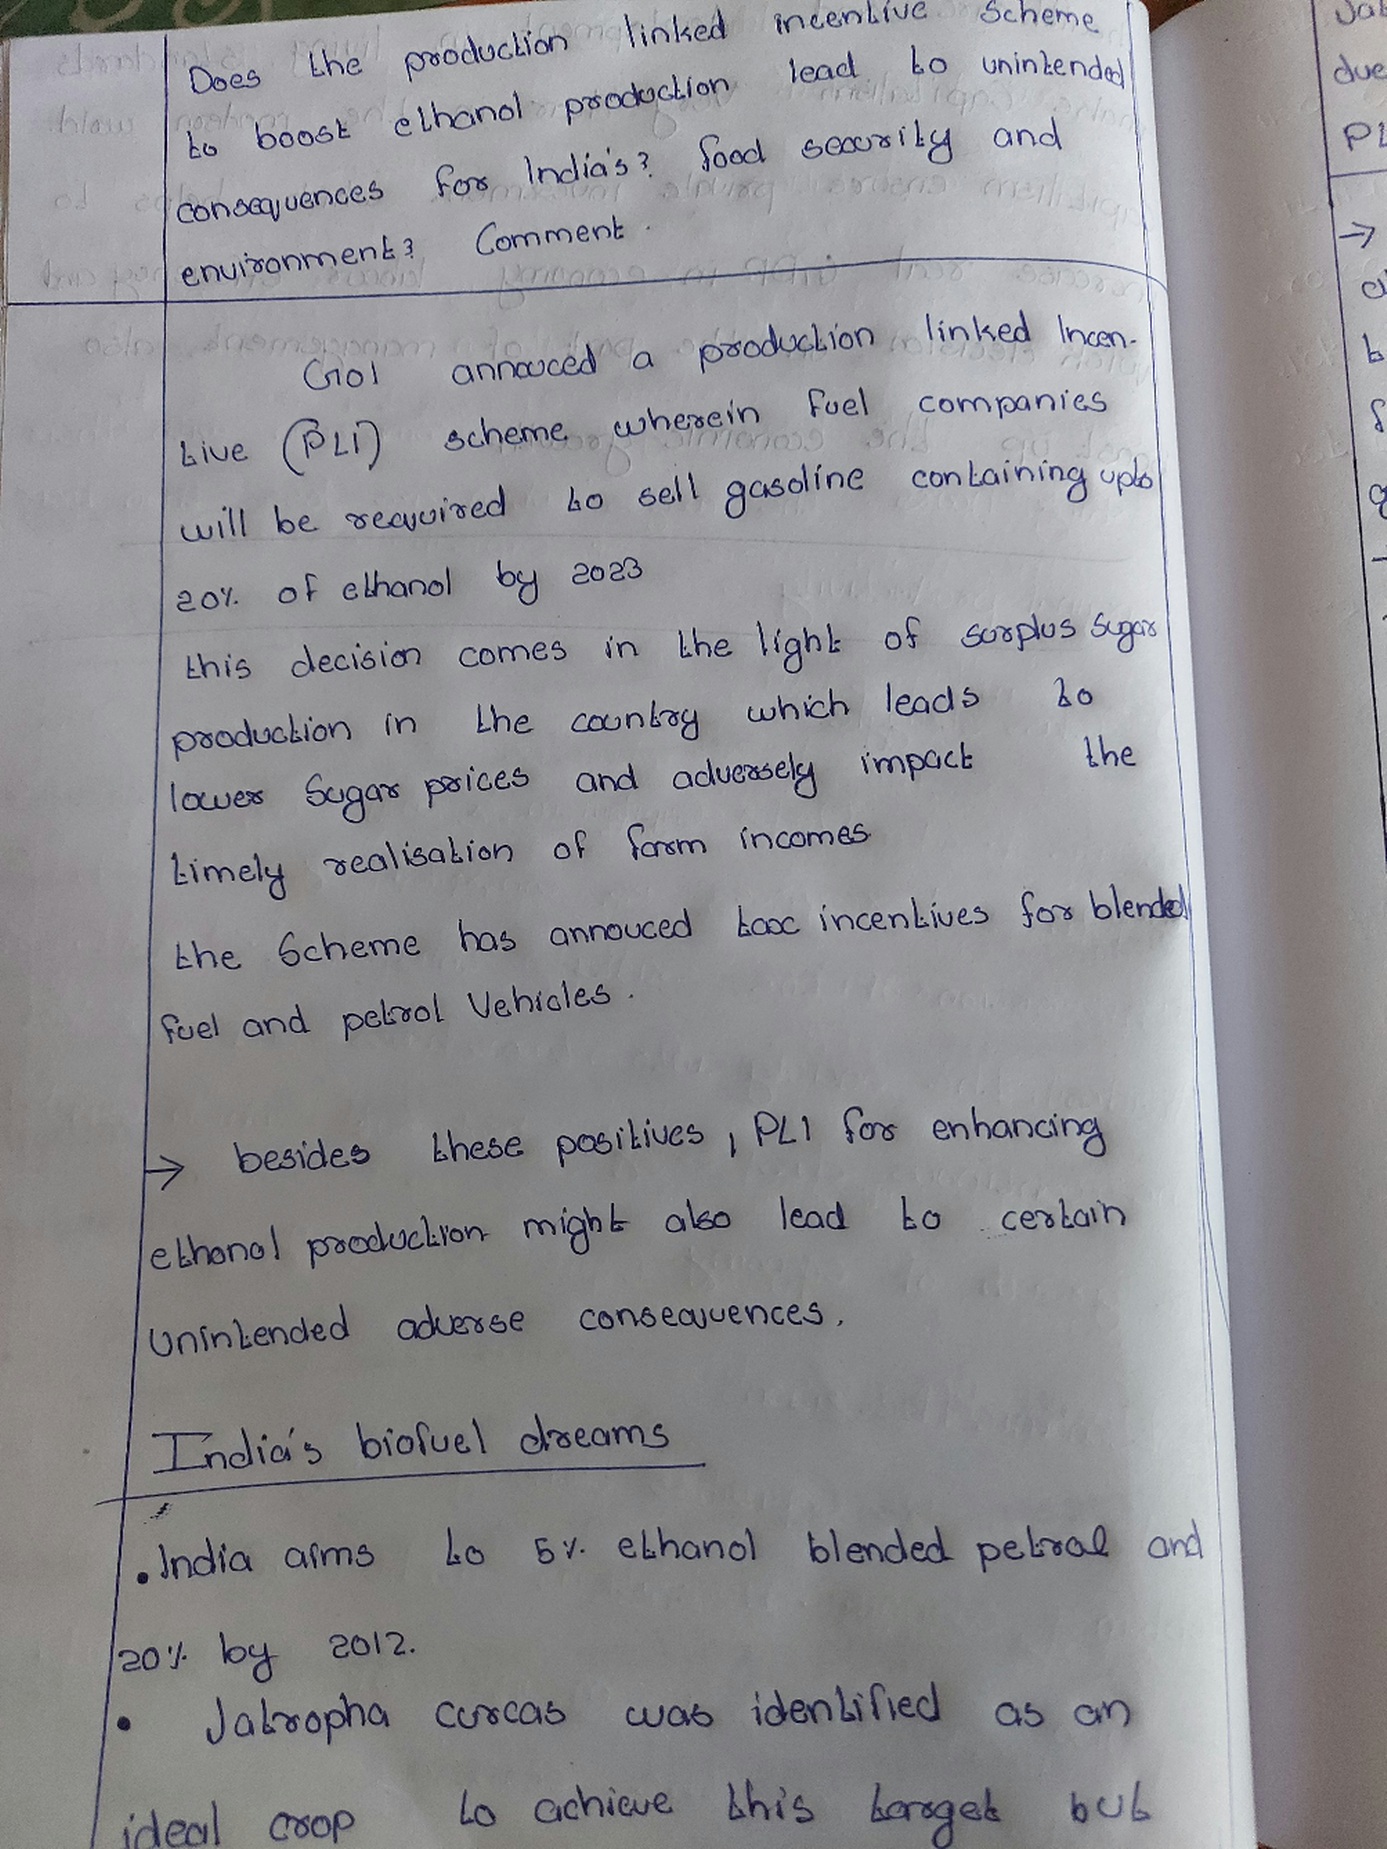 Does the production linked incentive Scheme
to boost ethanol production lead to unintended
consequences for India's? food security and
environment? Comment.
GOI annouced a production linked Incen-
tive (PLI) scheme wherein fuel companies
will be required to sell gasoline containing upto
20% of ethanol by 2023
this decision comes in the light of surplus Sugar
production in the country which leads to
lower Sugar prices and adversely impact the
timely realisation of farm incomes
the Scheme has annouced tax incentives for blended
fuel and petrol Vehicles.
→ besides these positives, PLI for enhancing
ethanol production might also lead to certain
Unintended adverse consequences.
India's biofuel dreams
• India aims to 5% ethanol blended petrol and
20% by 2012.
• Jatropha curcas was identified as an
ideal crop to achieve this target but
due
PL
→